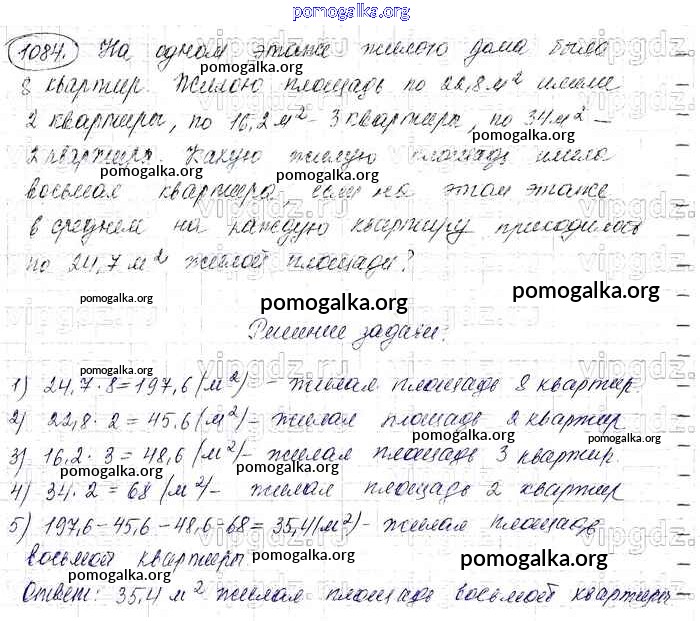 pomogalka.org
1084. На одном этаже жилого дома было
8 квартир. Жилою площадь по 22,8 м² имели
pomogalka.org
2 квартиры, по 16,2 м² – 3 квартиры, по 34 м² –
pomogalka.org
2 квартиры. Какую жилую площадь имела
pomogalka.org
восьмая квартира, если на этом этаже
в среднем на каждую квартиру приходилось
по 24,7 м² жилой площади?
pomogalka.org
pomogalka.org
pomogalka.org
Решение задачи:
pomogalka.org
1) 24,7 · 8 = 197,6 (м²) – жилая площадь 8 квартир.
2) 22,8 · 2 = 45,6 (м²) – жилая площадь 2 квартир
pomogalka.org
pomogalka.org
3) 16,2 · 3 = 48,6 (м²) – жилая площадь 3 квартир.
pomogalka.org
4) 34 · 2 = 68 (м²) – жилая площадь 2 квартир
5) 197,6 – 45,6 – 48,6 – 68 = 35,4 (м²) – жилая площадь
восьмой квартиры.
pomogalka.org
pomogalka.org
Ответ: 35,4 м² жилая площадь восьмой квартиры